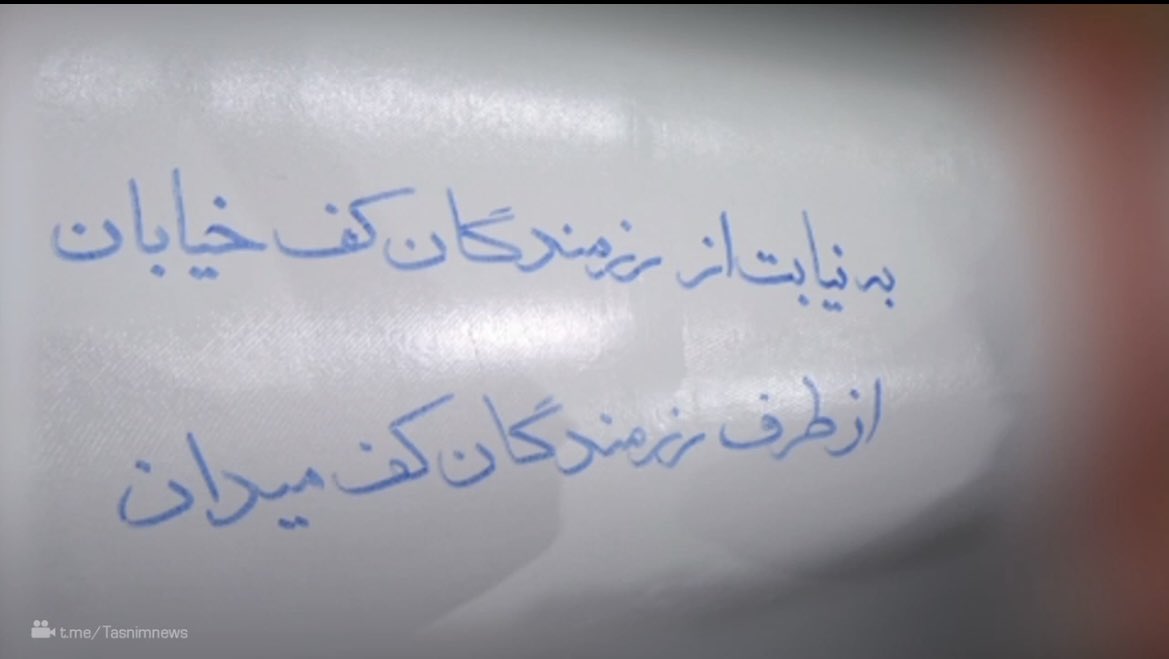 به نیابت از رزمندگان کف خیابان
از طرف رزمندگان کف میدان
t.me/Tasnimnews